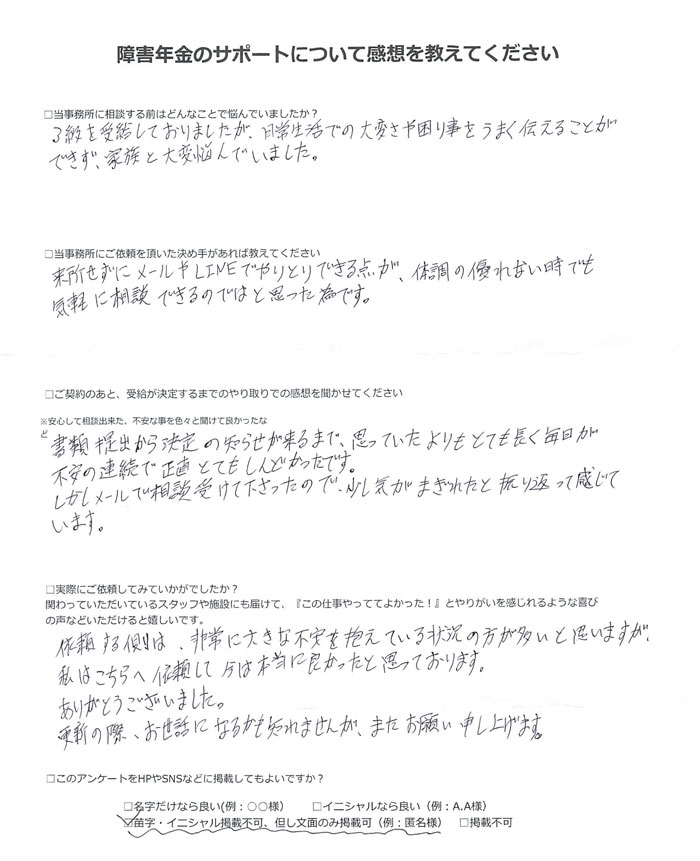 障害年金のサポートについて感想を教えてください
□当事務所に相談する前はどんなことで悩んでいましたか？
3級を受給しておりましたが、日常生活での大変さや困り事をうまく伝えることが
できず、家族と大変悩んでいました。
□当事務所にご依頼を頂いた決め手があれば教えてください
来所せずにメールやLINEでやりとりできる点が、体調の優れない時でも
気軽に相談できるのではと思った為です。
□ご契約のあと、受給が決定するまでのやり取りでの感想を聞かせてください
※安心して相談出来た、不安な事を色々と聞けて良かったな
ど
書類提出から決定の知らせが来るまで、思っていたよりもとても長く毎日が
不安の連続で正直とてもしんどかったです。
しかしメールで相談受けて下さったので、少し気がまぎれたと振り返って感じて
います。
□実際にご依頼してみていかがでしたか？
関わっていただいているスタッフや施設にも届けて、『この仕事やっててよかった！』とやりがいを感じれるような喜び
の声などいただけると嬉しいです。
依頼する側は、非常に大きな不安を抱えている状況の方が多いと思いますが、
私はこちらへ依頼して今は本当に良かったと思っております。
ありがとうございました。
更新の際、お世話になるかも知れませんが、またお願い申し上げます。
□このアンケートをHPやSNSなどに掲載してもよいですか？
□名字だけなら良い(例：〇〇様) □イニシャルなら良い（例：A.A様）
☑苗字・イニシャル掲載不可、但し文面のみ掲載可（例：匿名様） □掲載不可